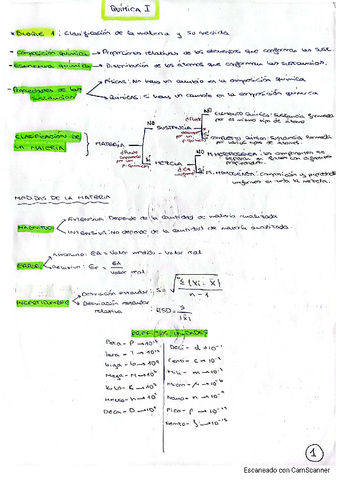 QUÍMICA I
• BLOQUE 1: Clasificación de la materia y su medida
• Composición química → Proporciones relativas de los elementos que conforman las sust.
• Estructura química → Distribución de los átomos que conforman las sustancias.
• Propiedades de las sustancias
Físicas: No hay un cambio en la composición química
Químicas: sí hay un cambio en la composición química
CLASIFICACIÓN DE LA MATERIA
MATERIA
NO
SUSTANCIA
NO
ELEMENTO QUÍMICO: Sustancia formada por el mismo tipo de átomo
SI
COMPUESTO QUÍMICO: Sustancia formada por varios tipos de átomos.
SI
MEZCLA
NO
M. HETEROGÉNEA: los componentes se
SI
M. HOMOGÉNEA: Composición y propiedades uniformes en toda la mezcla.
MEDIDAS DE LA MATERIA
MAGNITUD
Extensiva: Depende de la cantidad de materia analizada
Intensiva: No depende de la cantidad de materia analizada.
ERROR
Absoluto: Ea = Valor medido - Valor real
Relativo: Er = Ea / Valor real
INCERTIDUMBRE
Desviación estándar: S = √ Σ (Xi - X̄) / n - 1
Desviación estándar relativa: RSD = S / |X̄|
Peta - P → 10¹⁵
Tera - T → 10¹²
Giga - G → 10⁹
Mega - M → 10⁶
Kilo - K → 10³
Hecto - h → 10²
Deca - D → 10¹
Deci - d → 10⁻¹
Centi - c → 10⁻²
Mili - m → 10⁻³
Micro - μ → 10⁻⁶
Nano - n → 10⁻⁹
Pico - p → 10⁻¹²
Femto - f → 10⁻¹⁵
1
Escaneado con CamScanner